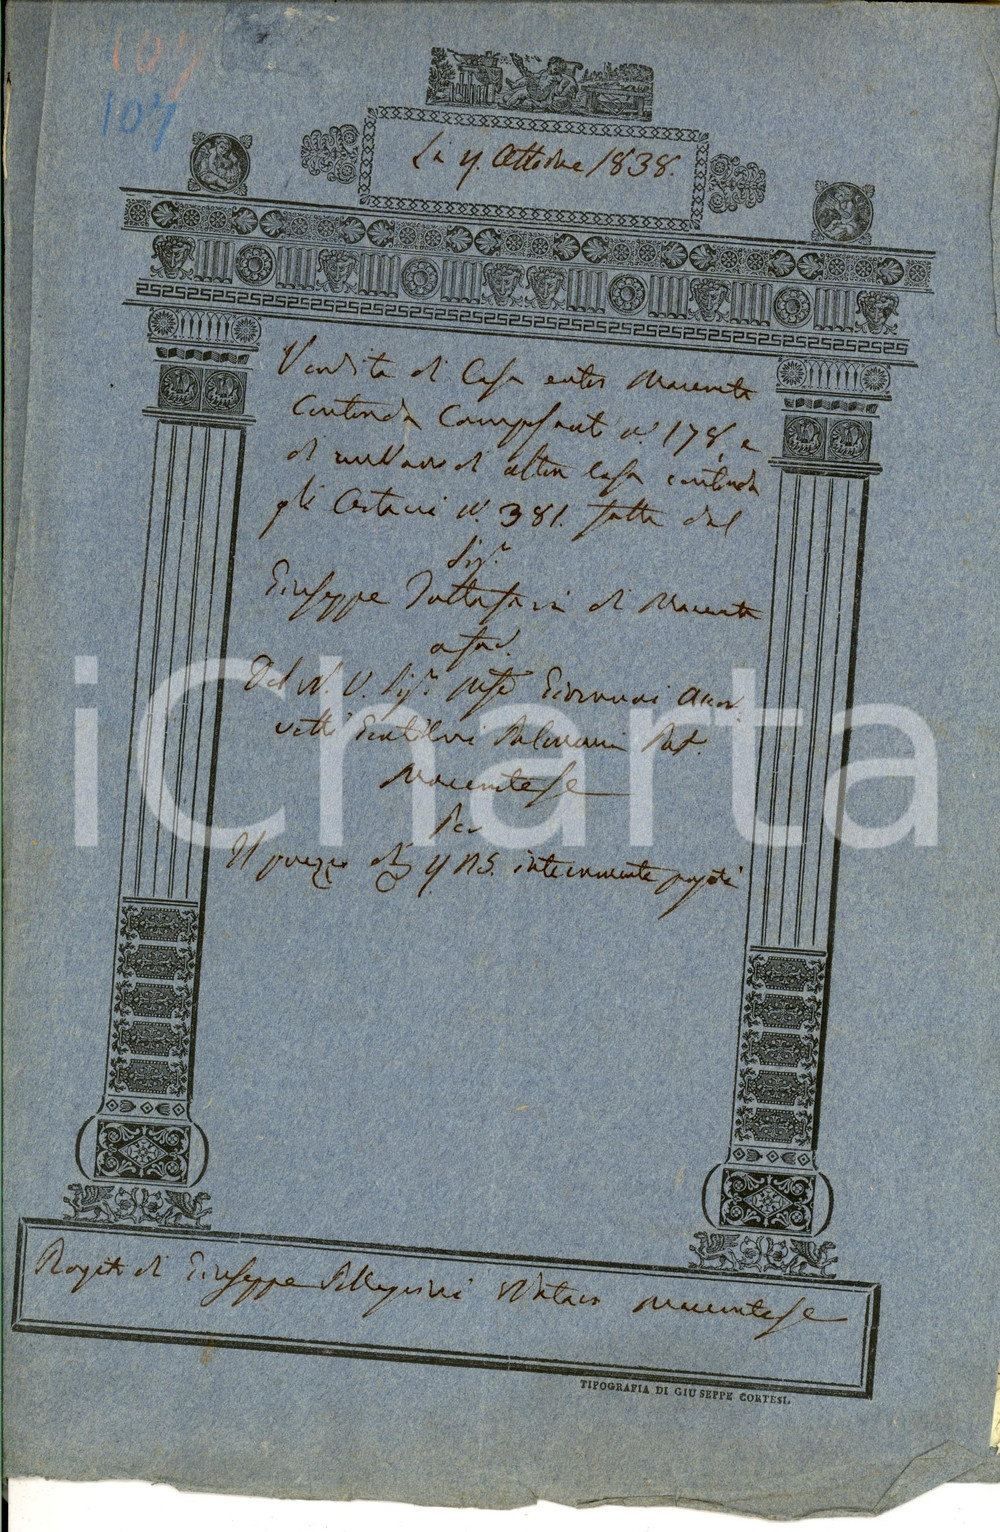 107
107
Li 4. Ottobre 1838.
Vendita di Casa entro Macerata
Contrada Campsanto N.° 178, e
di un Vano di altra Casa contrada
gli Orti N.° 381. fatta dal
Sig.r
Giuseppe di Macerata
a fav.
Del N. U. Sig.r Giovanni Accor-
retti Gentilomo Pat.
Maceratese
Per
Il prezzo di interamente pagati
Rogito di Giuseppe Pellegrini Notaro Maceratese
TIPOGRAFIA DI GIUSEPPE CORTESI.
iCharta